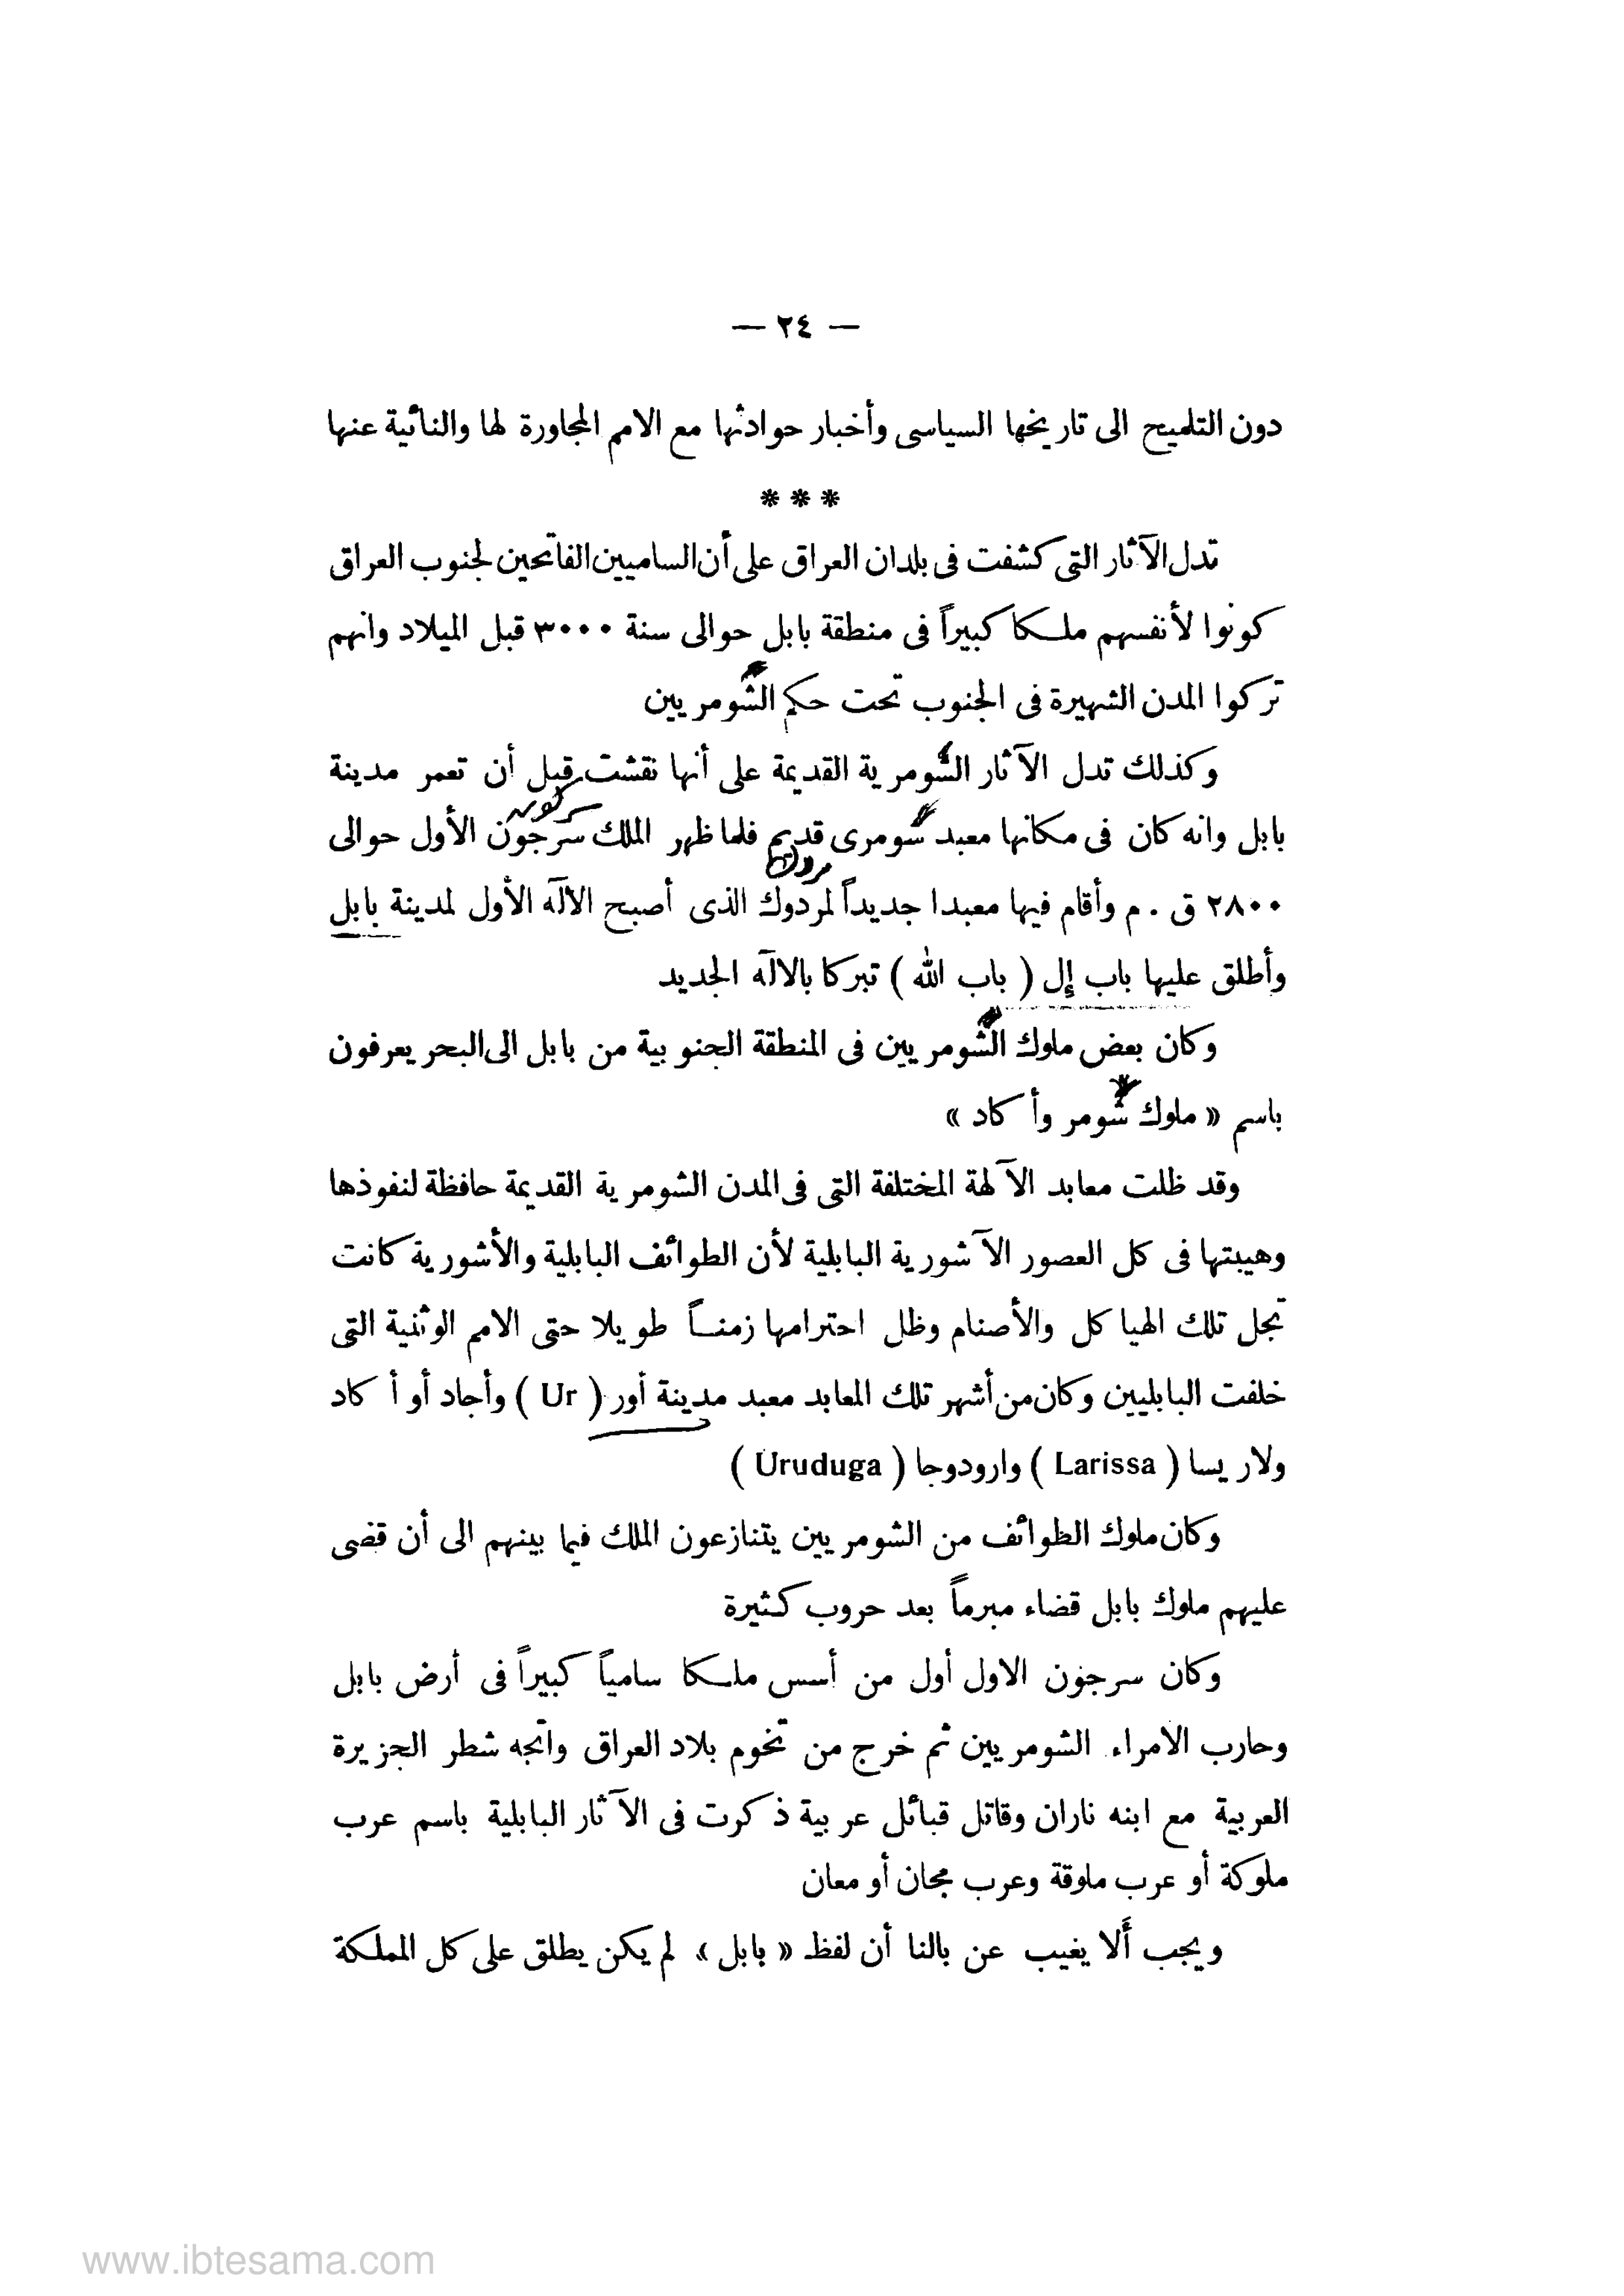 — ٢٤ —
دون التلميح الى تاريخها السياسى وأخبار حوادثها مع الامم المجاورة لها والنائية عنها
* * *
تدل الآثار التى كشفت فى بلدان العراق على أن الساميين الفاتحين لجنوب العراق
كونوا لأنفسهم ملكا كبيراً فى منطقة بابل حوالى سنة ٣٠٠٠ قبل الميلاد وانهم
تركوا المدن الشهيرة فى الجنوب تحت حكم الشومريين
وكذلك تدل الآثار الشومرية القديمة على أنها نقشت قبل أن تعمر مدينة
بابل وانه كان فى مكانها معبد شومرى قديم فلما ظهر الملك سرجون الأول حوالى
٢٨٠٠ ق . م وأقام فيها معبدا جديداً لمردوك الذى أصبح الآله الأول لمدينة بابل
وأطلق عليها باب إل ( باب الله ) تبركا بالآله الجديد
وكان بعض ملوك الشومريين فى المنطقة الجنوبية من بابل الى البحر يعرفون
باسم « ملوك شومر وأكاد »
وقد ظلت معابد الآلهة المختلفة التى فى المدن الشومرية القديمة حافظة لنفوذها
وهيبتها فى كل العصور الآشورية البابلية لأن الطوائف البابلية والأشورية كانت
تجل تلك الهياكل والأصنام وظل احترامها زمنــاً طويلا حتى الامم الوثنية التى
خلفت البابليين وكان من أشهر تلك المعابد معبد مدينة أور ( Ur ) وأجاد أو أكاد
ولاريسا ( Larissa ) وارودوجا ( Uruduga )
وكان ملوك الطوائف من الشومريين يتنازعون الملك فيما بينهم الى أن قضى
عليهم ملوك بابل قضاء مبرماً بعد حروب كثيرة
وكان سرجون الاول أول من أسس ملكا سامياً كبيراً فى أرض بابل
وحارب الامراء الشومريين ثم خرج من تخوم بلاد العراق واتجه شطر الجزيرة
العربية مع ابنه ناران وقاتل قبائل عربية ذكرت فى الآثار البابلية باسم عرب
ملوكة أو عرب ملوقة وعرب مجان أو معان
ويجب ألا يغيب عن بالنا أن لفظ « بابل » لم يكن يطلق على كل المملكة
www.ibtesama.com